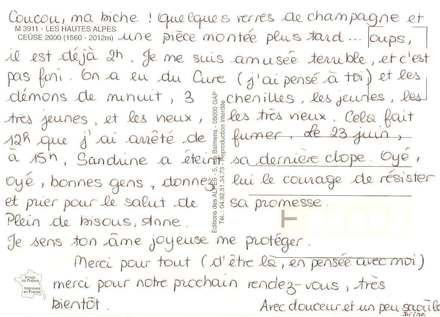 Coucou, ma biche ! Quelques verres de champagne et
M 3911 - LES HAUTES ALPES
CEÜSE 2000 (1560 - 2012m)
une pièce montée plus tard ... oups,
il est déjà 2h. Je me suis amusée terrible, et c'est
pas fini. On a eu du Cure (j'ai pensé à toi) et les
démons de minuit, 3 chenilles, les jeunes, les
très jeunes, et les vieux, les très vieux. Cela fait
12h que j'ai arrêté de fumer, le 23 juin,
à 15h, Sandrine a éteint sa dernière clope. Oyé,
oyé, bonnes gens, donnez lui le courage de résister
et prier pour le salut de sa promesse.
Plein de bisous, Anne.
Je sens ton âme joyeuse me protéger.
Merci pour tout (d'être là, en pensée avec moi)
merci pour notre prochain rendez-vous, très
bientôt. Avec douceur et un peu saoûle
Editions des ALPES - 5, 05000 GAP